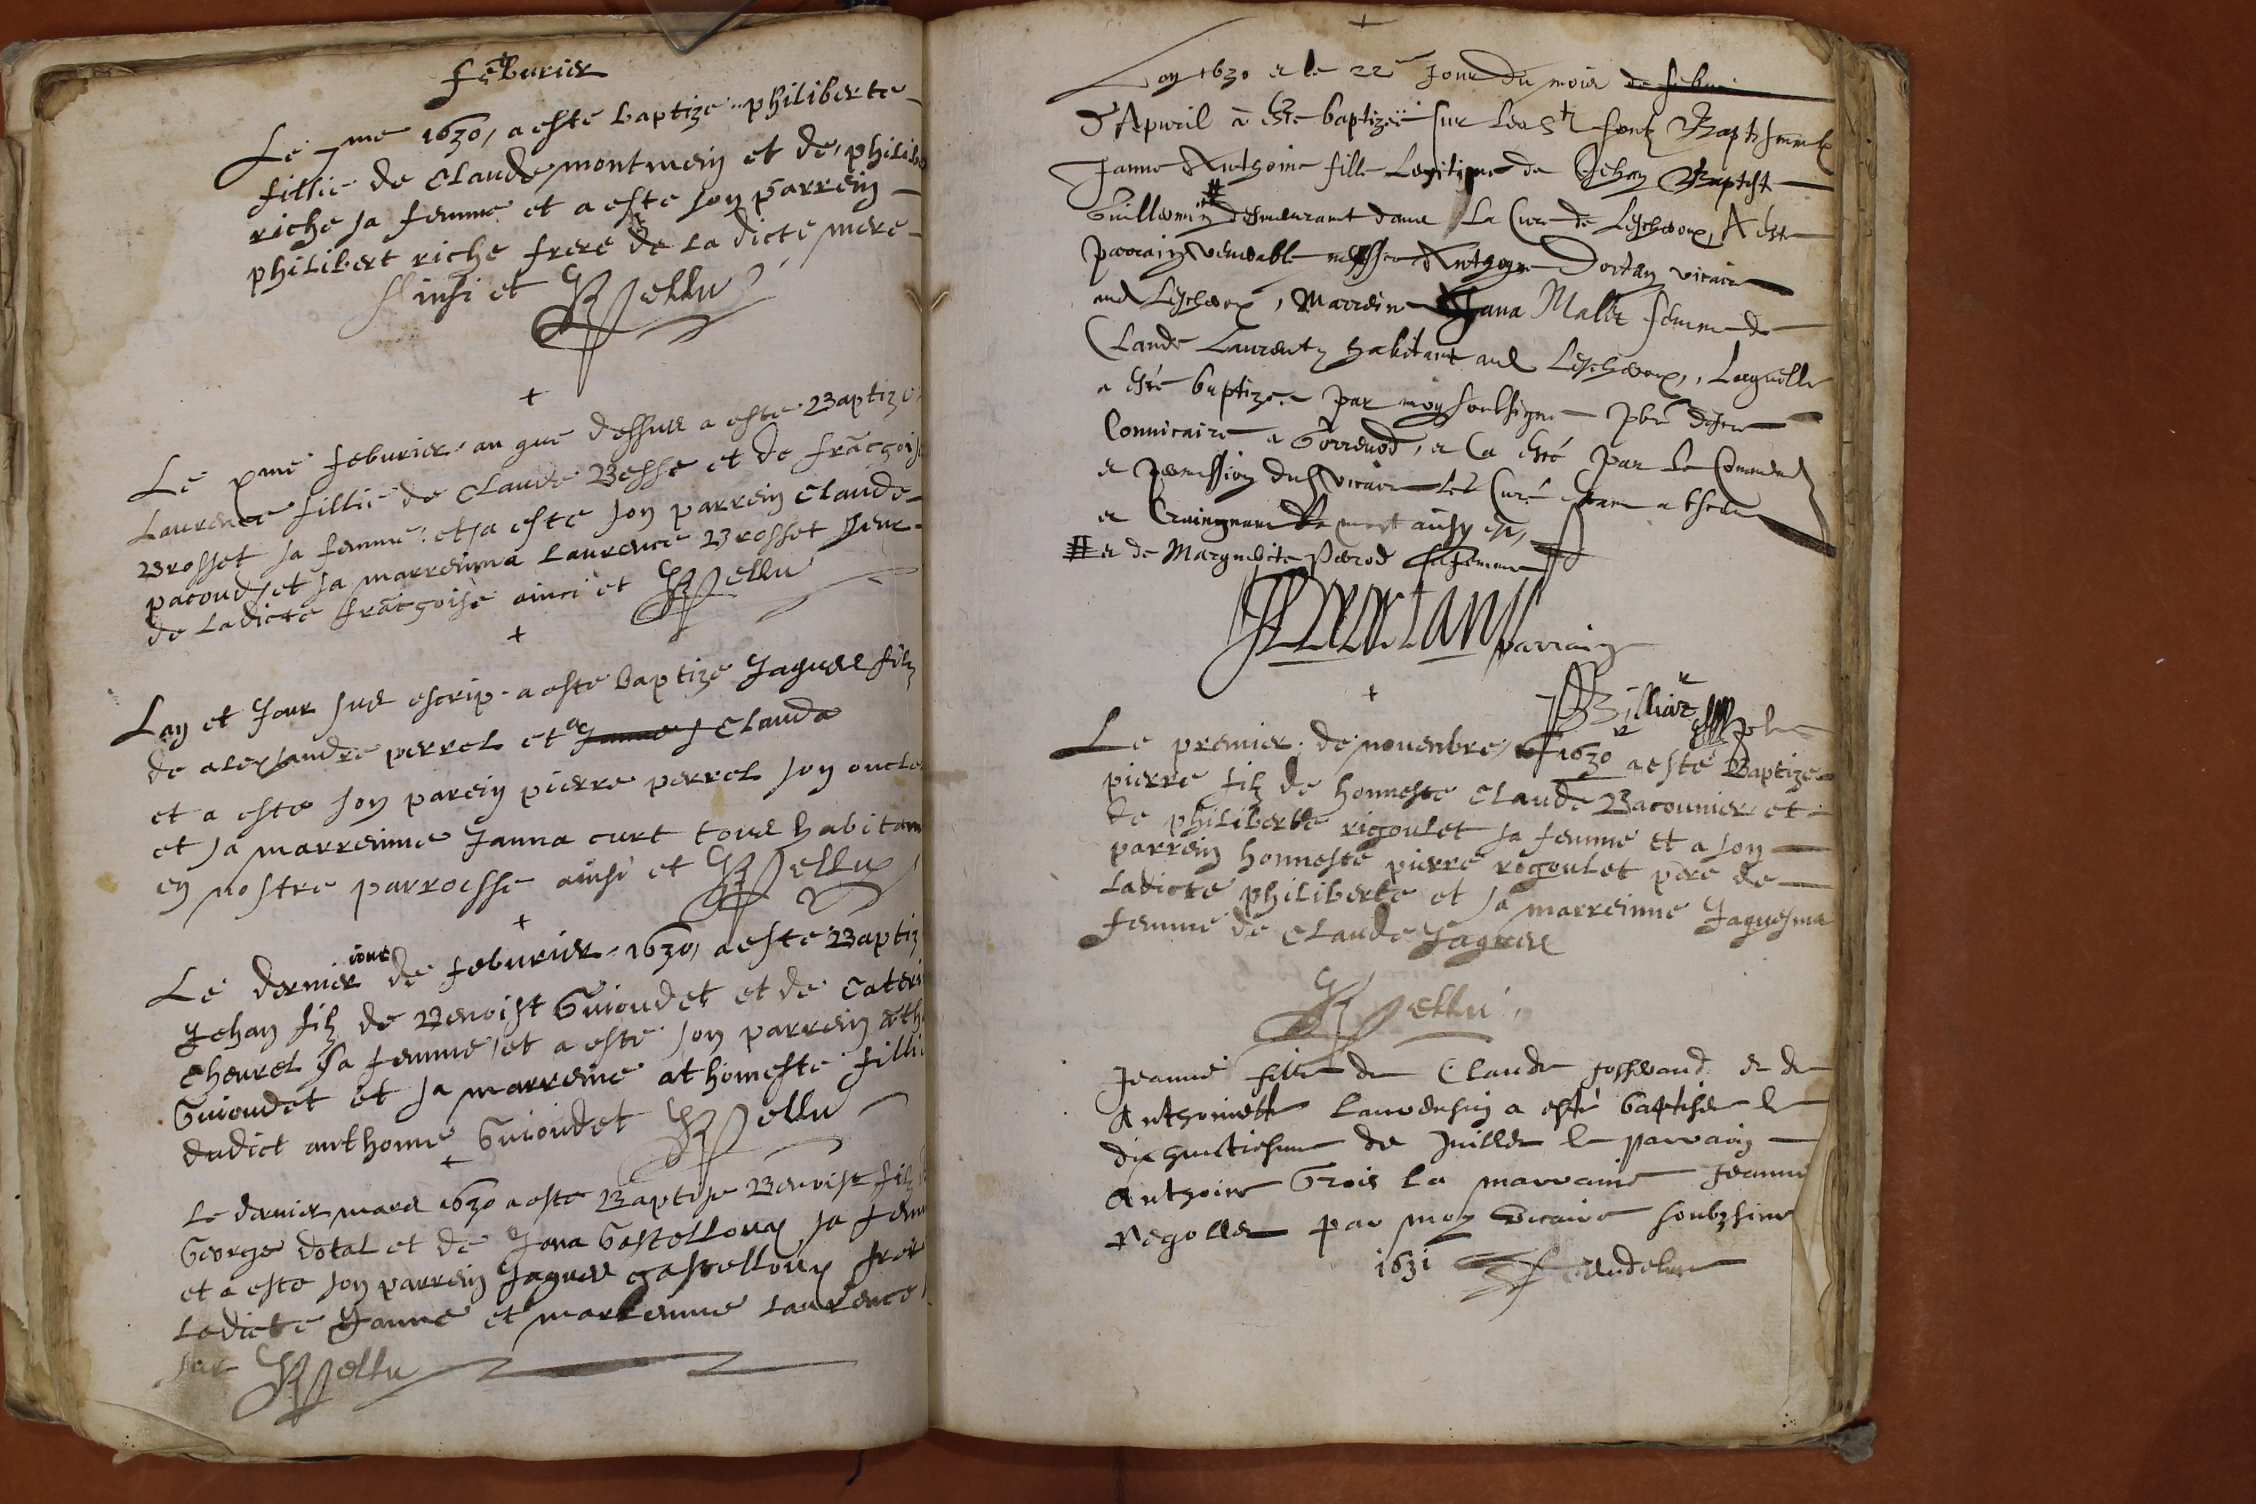 Feburier
Le 7me 1630, a este baptize philiberte
fillie de Claude montmein et de, philib
riche sa femme et a este son parrein
philibert riche frere de la dicte mere
Ainsi et Pellu
+
Le xme feburier an que dessus a este Baptize
Laurence fillie de Claude Besse et de francoise
Brosset sa femme et a este son parrein Claude
pacoud et sa marreinna Laurence Brosset seur
de ladicte francoise ainci et Pellu
+
Lan et Jour sus escrip a este baptize Jaques filz
de alexandre perrel et Claude
et a este son parein pierre perrel son oncle
et sa marreinne Janna curt tous habitan
en nostre parroesse ainsi et Pellu
+
Le dernier jour de feburier 1630, a este Baptiz
Jehan filz de Benoist Guioudet et de Cateri
Chevrel sa femme et a este son parrein
Guioudet et sa marreine fillie
dudict anthoine Guioudet Pellu
+
Le dernier mars 1630 a este Baptise Benoist filz
George dotal et de Jana Gastelloux sa fem
et a este son parrein Jaques gastelloux frer
ladicte Janne et marreinne Laurence
Pellu
+
Lan 1630 et le 22e Jour du mois de febu
d'Apvril a este baptizee sur les Stz fontz Baptismaulx
Janne Anthoine fille Legitime de Jehan Baptiste
Guillemin # demeurant dans La Cure de Leschoux, A este
parrain venerable messire Anthoyne Dortan vicaire
aud Leschoux, Marreine Jana Mallet femme de
Claude Laurent habitant aud Leschoux, Laquelle
a esté baptizee par moy soubsigne pbre
Convicaire a Gorrevod, et Ca esté par le Commend
et permission dud vicaire led Curé estant absent
et ainsy est,
# et de Marguerite Perod sa femme
Dortans parrain
+
Billiar
Le premier de novembre, 1630 a esté Baptize
pierre filz de honneste Claude Bacounier et
de philiberte rigoulet sa femme et a son
parrein honneste pierre rigoulet pere de
ladicte philiberte et sa marreinne Jaquesma
femme de Claude Jaques
Pellu
Jeanne fille de Claude et de
Anthoinette a esté baptisee le
dixhuictiesme de Juillet le parrain
Anthoine Grois la marraine Jeanne
Regollet par moy vicaire soubzsine
1631